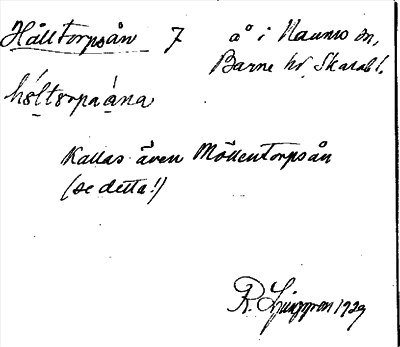 Hålltorpsån 7 å i Naums sn,
Barne hd, Skarabl.
hóltorpaána
Kallas även Möllentorpsån
(se detta!)
R. Ljunggren 1929